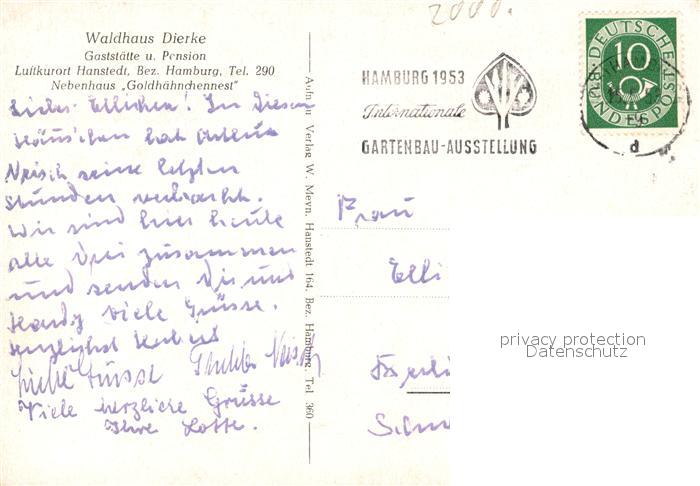 2000.
Waldhaus Dierke
Gaststätte u. Pension
Luftkurort Hanstedt, Bez. Hamburg, Tel. 290
Nebenhaus „Goldhähnchennest"
Liebes Ellichen! In diesem
Häuschen hat Arthur
Neisch seine letzten
Stunden verbracht.
Wir sind hier heute
alle drei zusammen
und senden Dir und
Hardy viele Grüsse.
Herzlichst
Liebe Grüsse
Viele herzliche Grüsse
Ihre Lotte.
Aufn. u. Verlag W. Meyn, Hanstedt 164, Bez. Hamburg, Tel. 360
HAMBURG 1953
Internationale
GARTENBAU-AUSSTELLUNG
DEUTSCHE BUNDESPOST
10
d
Frau
Elli
privacy protection
Datenschutz